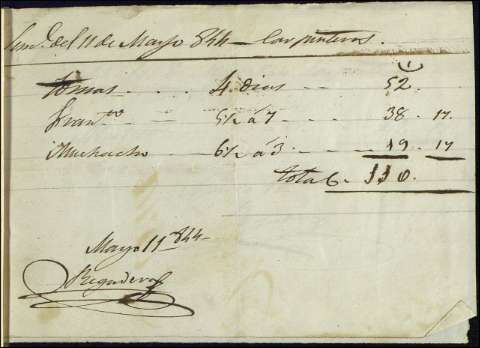 Sem.ª del 11 de Mayo 844 — Carpinteros.
Tomas . . . . 4 dias . . . . 52
Fran.co . . . 5½ á 7 . . . 38 . 17.
Muchacho . . 6½ á 3 . . . 19 . 17
Total . 110.
Mayo 11 844
Regadera